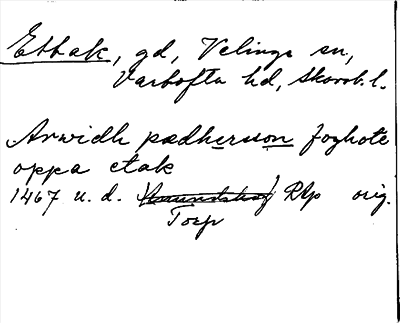 Etbak, gd, Velinge sn,
Vartofta hd, Skarab. l.
Arwidh pædhersson foghote
oppa etak
1467 u. d. RAp orig.
Torp